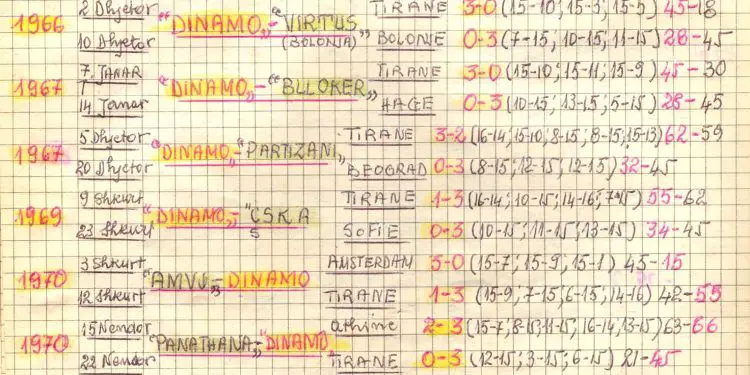 2 Dhjetor TIRANE 3-0 (15-10; 15-3; 15-5) 45-18
1966 "DINAMO„-"VIRTUS„
(BOLONIA)
10 Dhjetor BOLONIE 0-3 (7-15, 10-15; 11-15) 28-45
7. JANAR TIRANE 3-0 (15-10; 15-11; 15-9) 45-30
1967 "DINAMO„-"BLLOKER„
14 Janar HAGE 0-3 (10-15, 13-15; 5-15) 28-45
5 Dhjetor TIRANE 3-2 (16-14; 15-10, 8-15; 8-15; 15-13) 62-59
1967 "DINAMO„-"PARTIZANI„
20 Dhjetor BEOGRAD 0-3 (8-15; 12-15; 12-15) 32-45
9 Shkurt TIRANE 1-3 (16-14; 10-15; 14-16; 15) 55-62
1969 "DINAMO„-"CSKA
S
23 Shkurt SOFIE 0-3 (10-15; 11-15; 13-15) 34-45
3 Shkurt AMSTERDAM (15-7; 15-9, 15-1) 45-15
1970 "AMVJ„-DINAMO
12 Shkurt TIRANE 1-3 (15-9, 7-15; 6-15; 14-16) 42-55
15 Nendor athine 2-3 (15-7; 8-15; 11-15, 16-14; 13-15) 63-66
1970 "PANATHANA„-"DINAMO„
22 Nendor TIRANE 0-3 (12-15; 3-15; 6-15) 21-45